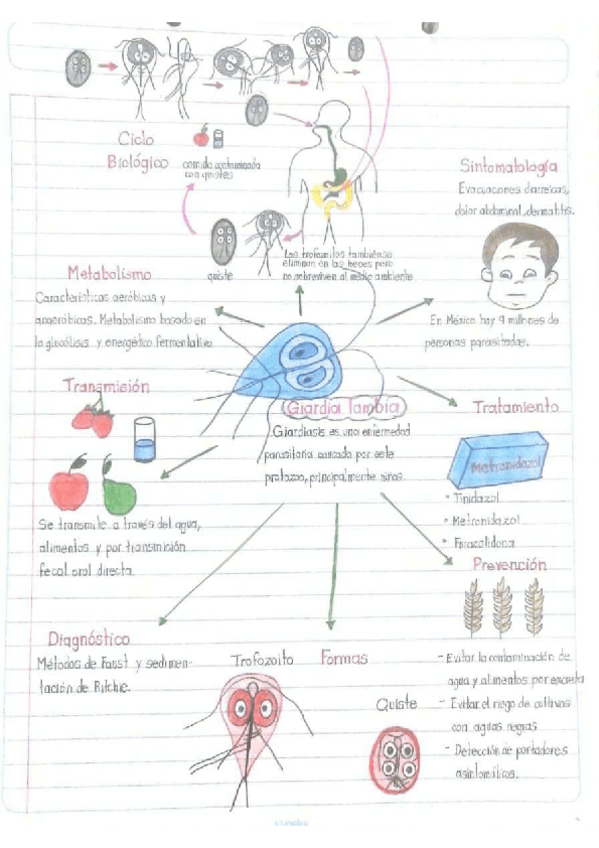 Ciclo
Biológico
comida contaminada
con quistes
quiste
Los trofozoitos también se
eliminan en las heces pero
no sobreviven al medio ambiente
Sintomatología
Evacuaciones diarreicas,
dolor abdominal, dermatitis.
En México hay 9 millones de
personas parasitadas.
Metabolismo
Características aeróbicas y
anaeróbicas. Metabolismo basado en
la glucólisis y energético fermentativo
Transmisión
Se transmite a través del agua,
alimentos y por transmisión
fecal oral directa.
Giardia lambia
Giardiasis es una enfermedad
parasitaria causada por este
protozoo, principalmente niños.
Tratamiento
Metronidazol
* Tinidazol
* Metronidazol
* Furazolidona
Prevención
- Evitar la contaminación de
agua y alimentos por excreta
- Evitar el riego de cultivos
con aguas negras
- Detección de portadores
asintomáticos.
Diagnóstico
Métodos de Faust y sedimen-
tación de Ritchie.
Trofozoito Formas
Quiste